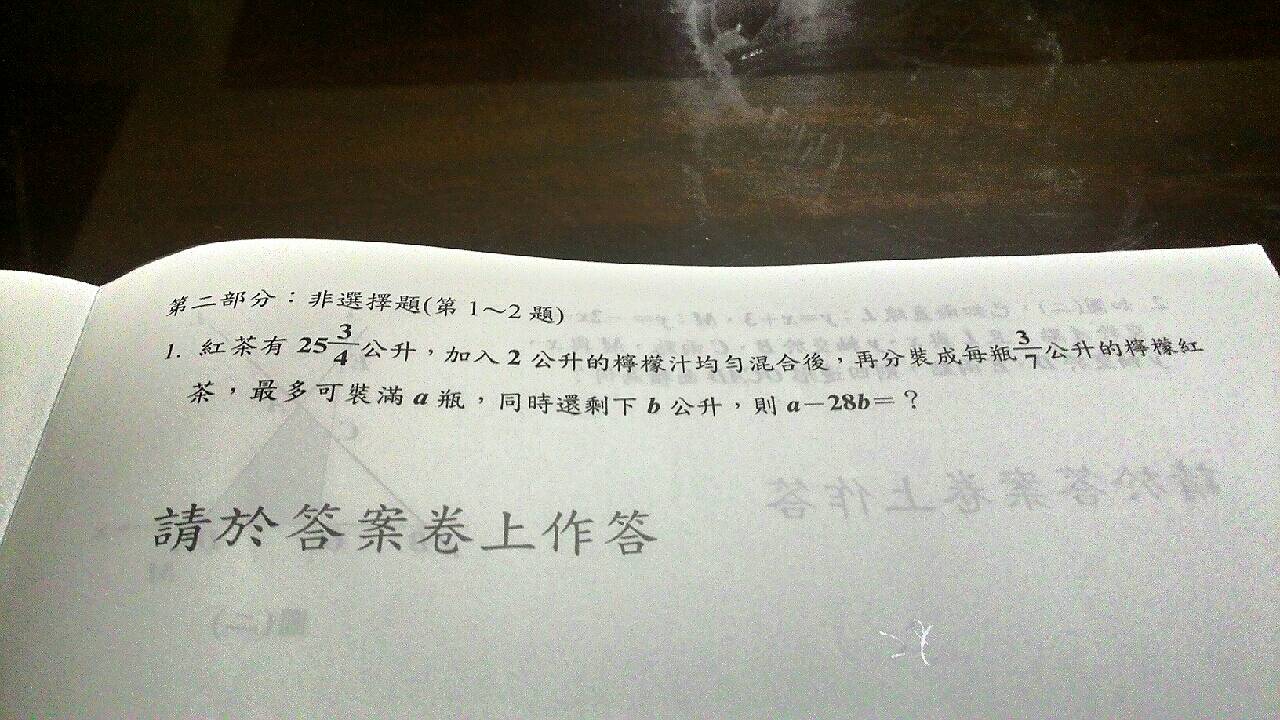 第二部分：非選擇題(第 1～2 題)
1. 紅茶有 25 3/4 公升，加入 2 公升的檸檬汁均勻混合後，再分裝成每瓶 3/7 公升的檸檬紅
茶，最多可裝滿 a 瓶，同時還剩下 b 公升，則 a－28b＝？
請於答案卷上作答